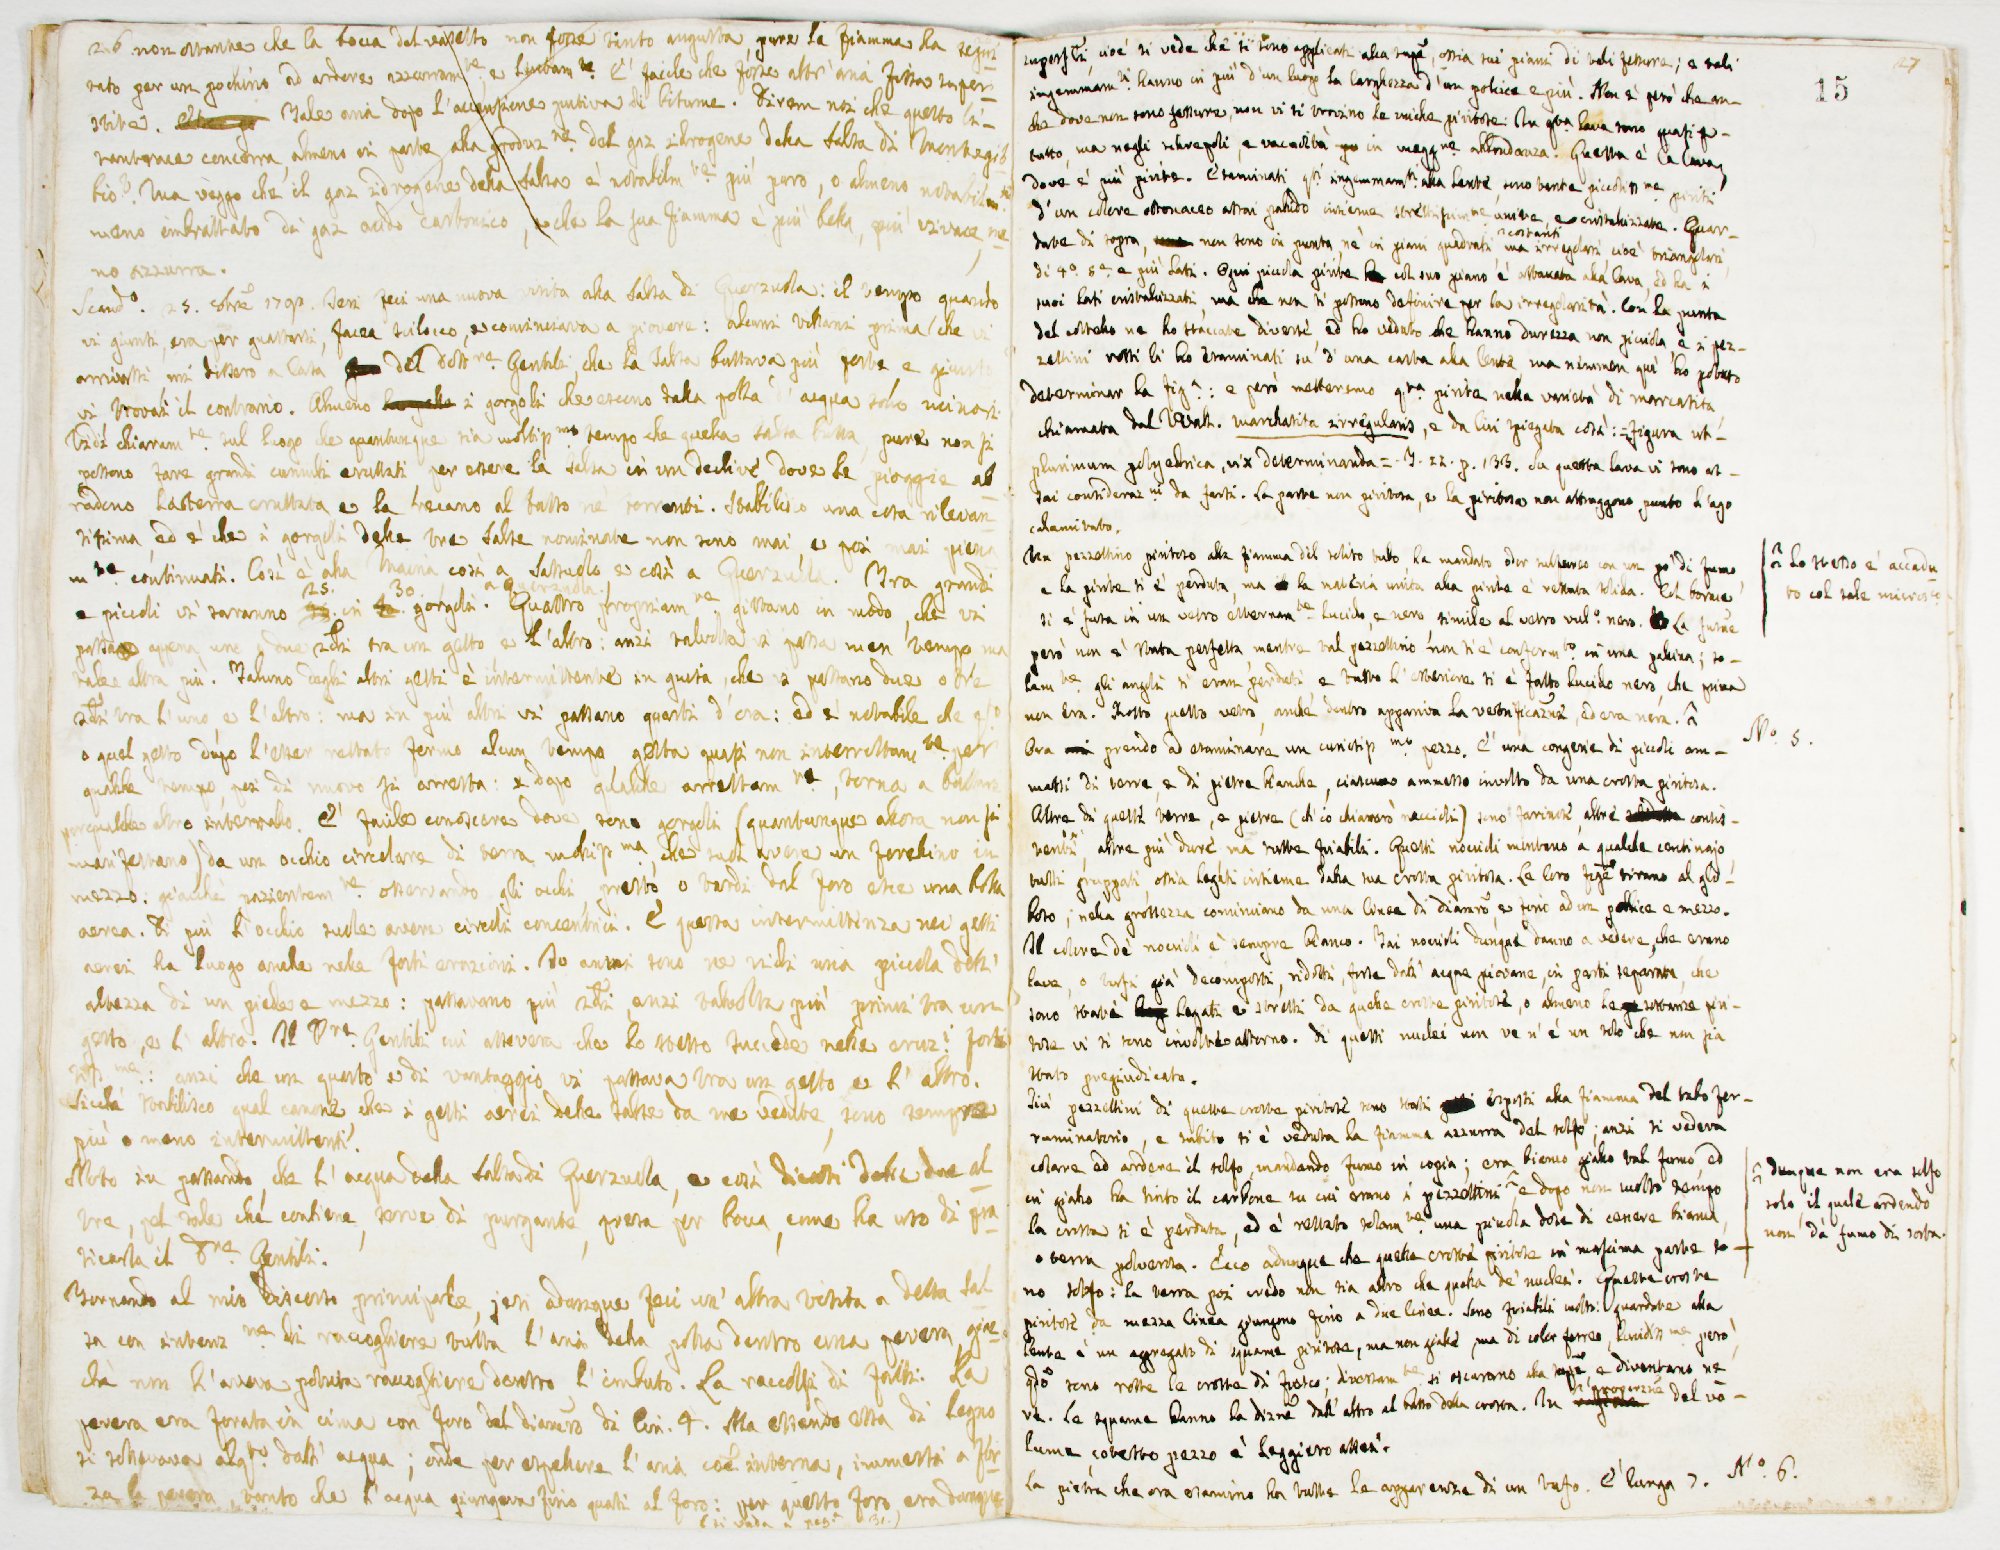 226 non ostante che la bocca del vasetto non fosse tanto angusta, pure la fiamma ha segui-
tato per un pochino ad ardere azzurram.te e lentam.te. E' facile che forse altr'aria fosse super-
stite. Tale aria dopo l'accensione putiva di bitume. Direm noi che questo li-
concorra, almeno in parte, alla produz.ne del gaz idrogene della Salsa di Montegib-
bio? Ma veggo che il gaz idrogene della Salsa è notabilm.te più puro, o almeno notabilm.te
meno imbrattato di gaz acido carbonico, che la sua fiamma è più bella, più vivace, me-
no azzurra.
Scand.o 25. 1793. Jeri feci una nuova visita alla Salsa di Querzuola: il tempo quando
vi giunsi, era per guastarsi, facea scilocco, e cominciava a piovere: alcuni villani prima che vi
arrivassi, mi dissero a Casa del dott.re Gentili, che la Salsa buttava più forte e giunto
vi trovai il contrario. Almeno i gorgolii che escono dalla polla d'acqua
Vidi chiaram.te sul luogo che quantunque sia moltiss.mo tempo che quella salsa butta, pure non si
possono fare grandi cumuli eruttati, per essere la salsa in un declive dove le pioggie ab-
radono la terra eruttata e la recano al basso ne' torrenti. Stabilisco una cosa rilevan-
tissima, ed è che i gorgolii delle tre Salse nominate non sono mai, e poi mai piena-
m.te continuati. Così è alla Maina così a Sassuolo, e così a Querzuola. Tra grandi
e piccoli vi saranno 25. in 30 gorgolii. Quattro propriam.te gittano in modo, che vi
passa appena uno o due 2di tra un getto e l'altro: anzi talvolta vi passa men tempo ma
altra più. Taluno degli altri getti è intermittente in guisa, che vi passano due o tre
2di tra l'uno e l'altro: ma in più altri vi passano quarti d'ora: ed è notabile che q.to
o quel getto dopo l'esser restato fermo alcun tempo getta quasi non interrottam.te per
qualche tempo, poi di nuovo si arresta: e dopo qualche arrestam.to, torna a buttare
per qualche altro intervallo. E' facile conoscere dove sono gorgolii (quantunque allora non si
manifestano) da un occhio circolare di terra mollissima, che suol avere un forellino in
mezzo: giacchè pazientem.te osservando gli occhi, presto o tardi dal foro esce una bolla
aerea. Di più l'occhio suole avere circoli concentrici. E questa intermittenza nei getti
aerei ha luogo anche nelle forti eruzioni. Due anni sono ne vidi una piccola dell'
altezza di un piede e mezzo: passavano più 2di, anzi talvolta più primi tra un
getto, e l'altro. Il D.re Gentili mi assevera che lo stesso succede nelle eruz.i forti-
ss.me: anzi che un quarto e di vantaggio vi passava tra un getto e l'altro.
Sicchè stabilisco qual canone che i getti aerei delle salse da me vedute, sono sempre
più o meno intermittenti.
Noto in passando, che l'acqua della Salsa di Querzuola, e così dicasi delle due al-
tre, pel sale che contiene, serve di purgante, presa per bocca, come ha uso di pra-
ticarla il D.re Gentili.
Tornando al mio discorso principale, jeri adunque feci un'altra visita a detta Sal-
sa con intenz.ne di raccogliere tutta l'aria della polla dentro una pevera, giac-
chè non l'aveva potuta raccogliere dentro l'imbuto. La raccolsi di fatti. La
pevera era forata in cima con foro del diametro di lin. 4. Ma essendo essa di legno
si sollevava alq.to dall'acqua; onde per espellere l'aria colà interna, immersi a for-
za la pevera, tanto che l'acqua giungeva fino quasi al foro: per questo foro era dunque
(si vada a pag.a 31.)
27
15
superf.li, cioè si vede che si sono applicati alla sup.e, ossia sui piani di tali fessure; e tali
ingemmam.ti hanno in più d'un luogo la larghezza d'un pollice e più. Non è però che an-
che dove non sono fessure, non vi si trovino le miche piritose: In q.ta lava sono quasi p.
tutto, ma negli screpoli, e vacuità in magg.re abbondanza. Questa è la lava,
dove è più pirite. Esaminati q.ti ingemmam.ti alla lente, sono tante piccoliss.me piriti
d'un colore ottonaceo assai pallido insieme strettissim.te unite, e cristallizzate. Guar-
date di sopra, non sono in punta, nè in piani quadrati costanti, ma irregolari, cioè triangolari,
di 4.o 5.e e più lati. Ogni piccola pirite col suo piano, è attaccata alla lava, ed ha i
suoi lati cristallizzati, ma che non si possono definire per la irregolarità. Con la punta
del coltello ne ho staccate diverse ed ho veduto che hanno durezza non piccola, e i pez-
zettini rotti li ho esaminati su d'una carta alla lente ma nemmen qui ho potuto
determinar la fig.a: e però metteremo q.ta pirite nella varietà di marcasita
chiamata dal Wall. marchasita irregularis, e da lui spiegata così: = Figura ut-
plurimum polyedrica, vix determinanda = T. 22. p. 133. Su questa lava vi sono as-
sai consideraz.ni da farsi. La parte non piritosa, e la piritosa non attraggono punto l'ago
calamitato.
Un pezzettino piritoso alla fiamma del solito tubo, ha mandato odor sulfureo con un po' di fumo
e la pirite si è perduta, ma la materia unita alla pirite è restata solida. Col borace
si è fusa in un vetro esternam.te lucido e nero simile al vetro vul.o nero. La fus.ne
però non è stata perfetta, mentre tal pezzettino non si è conform.to in una pallina; so-
lam.te gli angoli si eran perduti e tutto l'esteriore si è fatto lucido nero, che prima
non era. Rotto questo vetro, anche dentro appariva la vetrificaz.ne, ed era nera.
Ora prendo ad esaminare un curiosiss.mo pezzo. E' una congerie di piccoli am-
massi di terre, e di pietre bianche, ciascuno ammasso involto da una crosta piritosa.
Altre di queste terre, e pietre (ch'io chiamerò noccioli) sono farinose, altre consis-
tenti, altre più dure ma tutte friabili. Questi noccioli montano a qualche centinajo,
tutti gruppati, ossia legati insieme dalla sua crosta piritosa. Le loro fig.e tirano al glo-
boso; nella grossezza cominciano da una linea di diametro, e fino ad un pollice e mezzo.
Il colore de' noccioli è sempre bianco. Tai noccioli dunque danno a vedere, che erano
lave, o tufi già decomposti, ridotti, forse dall'acque piovane, in parti separate, che
sono state legati e stretti da quelle croste piritose, o almeno le sostanze piri-
tose vi si sono involte attorno. Di questi nuclei non ve n'è un solo che non sia
stato pregiudicato.
Più pezzettini di queste croste piritose sono stati esposti alla fiamma del tubo fer-
ruminatorio, e subito si è veduta la fiamma azzurra del solfo; anzi si vedeva
colare ed ardere il solfo, mandando fumo in copia; era bianco giallo tal fumo, ed
in giallo ha tinto il carbone su cui erano i pezzettini e dopo non molto tempo
la crosta si è perduta, ed è restato solam.te una piccola dose di cenere bianca,
o terra polverosa. Ecco adunque che quelle croste piritose in massima parte so-
no solfo: la terra poi credo non sia altro che quella de' nuclei. Queste croste
piritose da mezza linea giungono fino a due linee. Sono friabili molto: guardate alla
lente è un aggregato di squame piritose, ma non gialle, ma di color ferreo, lucidiss.me però,
q.do sono rotte le croste di fresco; diversam.te si oscurano alla sup.e, e diventano ne-
re. Le squame hanno la direz.ne dall'alto al basso della crosta. In proporzione del vo-
lume cotesto pezzo è leggiero assai.
La pietra che ora esamino ha tutte le apparenze di un tufo. E' lunga 7.
Lo stesso è accadu-
to col sale micros.co
N.o 5.
Dunque non era solfo
solo, il quale ardendo
non dà fumo di sorta.
N.o 6.